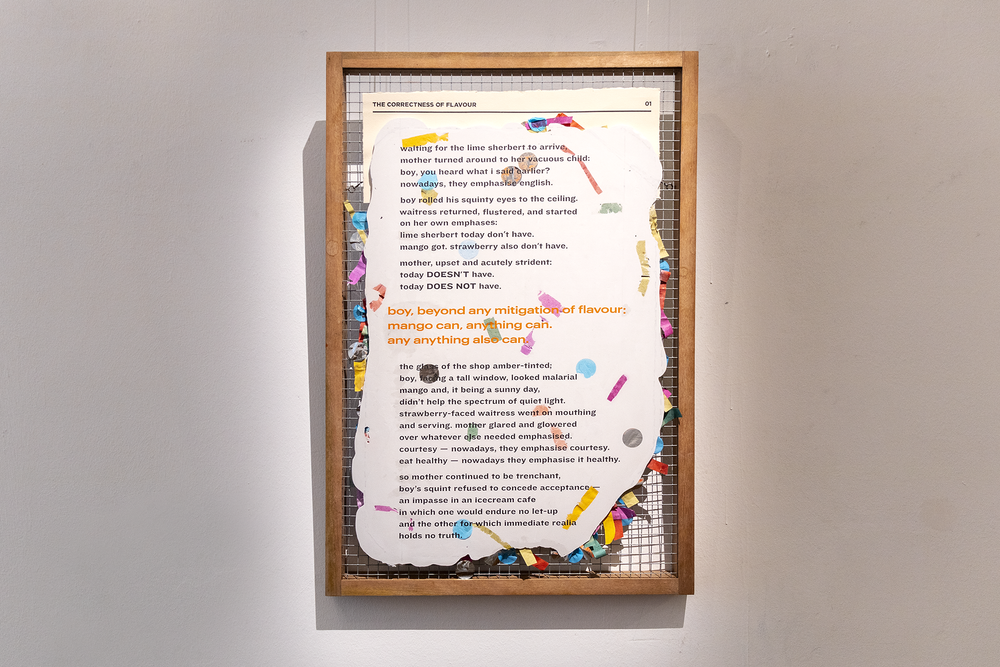 THE CORRECTNESS OF FLAVOUR 01
waiting for the lime sherbert to arrive,
mother turned around to her vacuous child:
boy, you heard what i said earlier?
nowadays, they emphasise english.
boy rolled his squinty eyes to the ceiling.
waitress returned, flustered, and started
on her own emphases:
lime sherbert today don't have.
mango got. strawberry also don't have.
mother, upset and acutely strident:
today DOESN'T have.
today DOES NOT have.
boy, beyond any mitigation of flavour:
mango can, anything can.
any anything also can.
the glass of the shop amber-tinted;
boy, facing a tall window, looked malarial
mango and, it being a sunny day,
didn't help the spectrum of quiet light.
strawberry-faced waitress went on mouthing
and serving. mother glared and glowered
over whatever else needed emphasised.
courtesy — nowadays, they emphasise courtesy.
eat healthy — nowadays they emphasise it healthy.
so mother continued to be trenchant,
boy's squint refused to concede acceptance —
an impasse in an icecream cafe
in which one would endure no let-up
and the other for which immediate realia
holds no truth.